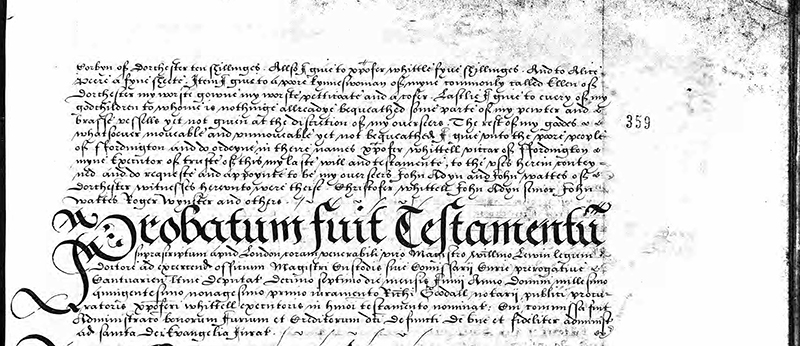 Corbyn of Dorchester ten shillinges. Allso I giue to xpofer whittle fyue shillinges. And to Alice
peere a fyne sheete. Item I giue to a pore kynneswoman of myne commonly called Ellen of
Dorchester my worste gowne my worste petticate and a rofer. Lastlie I giue to euery of my
godchildren to whome is nothinge allreadye bequeathed some parte of my pewter and
brasse vessells yet not giuen at the discretion of my ouerseers. The rest of my goodes
whatsoeuer moueable and unmoueable yet not bequeathed I giue unto the poore people
of ffordington and do ordeyne in theire names xpofer whittell vicar of ffordington
myne executor of truste of this my laste will and testamente, to the uses herein contey-
ned and do requeste and appoynte to be my ouerseers John Adyn and John wattes of
Dorchester witnesses herunto were these Christofer whittell John Adyn senior John
wattes Roger wynster and others.
Probatum fuit Testamentū
suprascriptum apud London coram venerabili viro Magistro willmo Lewin legum
Doctore ad exercend officium Magistri Custodis siue Comissarii Curie prerogatiue
Cantuarien ltime deputat Decimo septimo die mensis Junii Anno Domini millesimo
quingentesimo nonagesimo primo iuramento Richi Goodall notarii publici procu
ratoris xpoferi whittell executoris in hmoi Testamento nominat. Cui commissa fuit
Administraco bonorum iurium et Creditorum dci defuncti De bne et fideliter administ
ad sancta Dei Evangelia Jurat.
359